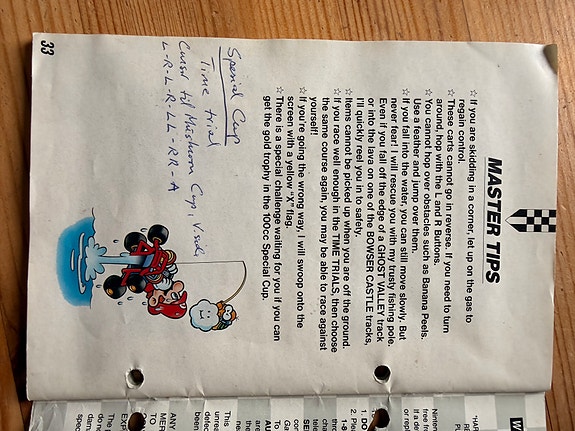 MASTER TIPS
☆ If you are skidding in a corner, let up on the gas to
regain control.
☆ These carts cannot go in reverse. If you need to turn
around, hop with the L and R Buttons.
☆ You cannot hop over obstacles such as Banana Peels.
Use a feather and jump over them.
☆ If you fall into the water, you can still move slowly. But
never fear! I will rescue you with my trusty fishing pole.
Even if you fall off the edge of a GHOST VALLEY track
or into the lava on one of the BOWSER CASTLE tracks,
I'll quickly reel you in to safety.
☆ Items cannot be picked up when you are off the ground.
☆ If you race well enough in the TIME TRIALS, then choose
the same course again, you may be able to race against
yourself!
☆ If you're going the wrong way, I will swoop onto the
screen with a yellow "X" flag.
☆ There is a special challenge waiting for you if you can
get the gold trophy in the 100cc Special Cup.
Special Cup
Time trial
til Mushroom Cup,
L-R-L-R-LL-RR-A
33